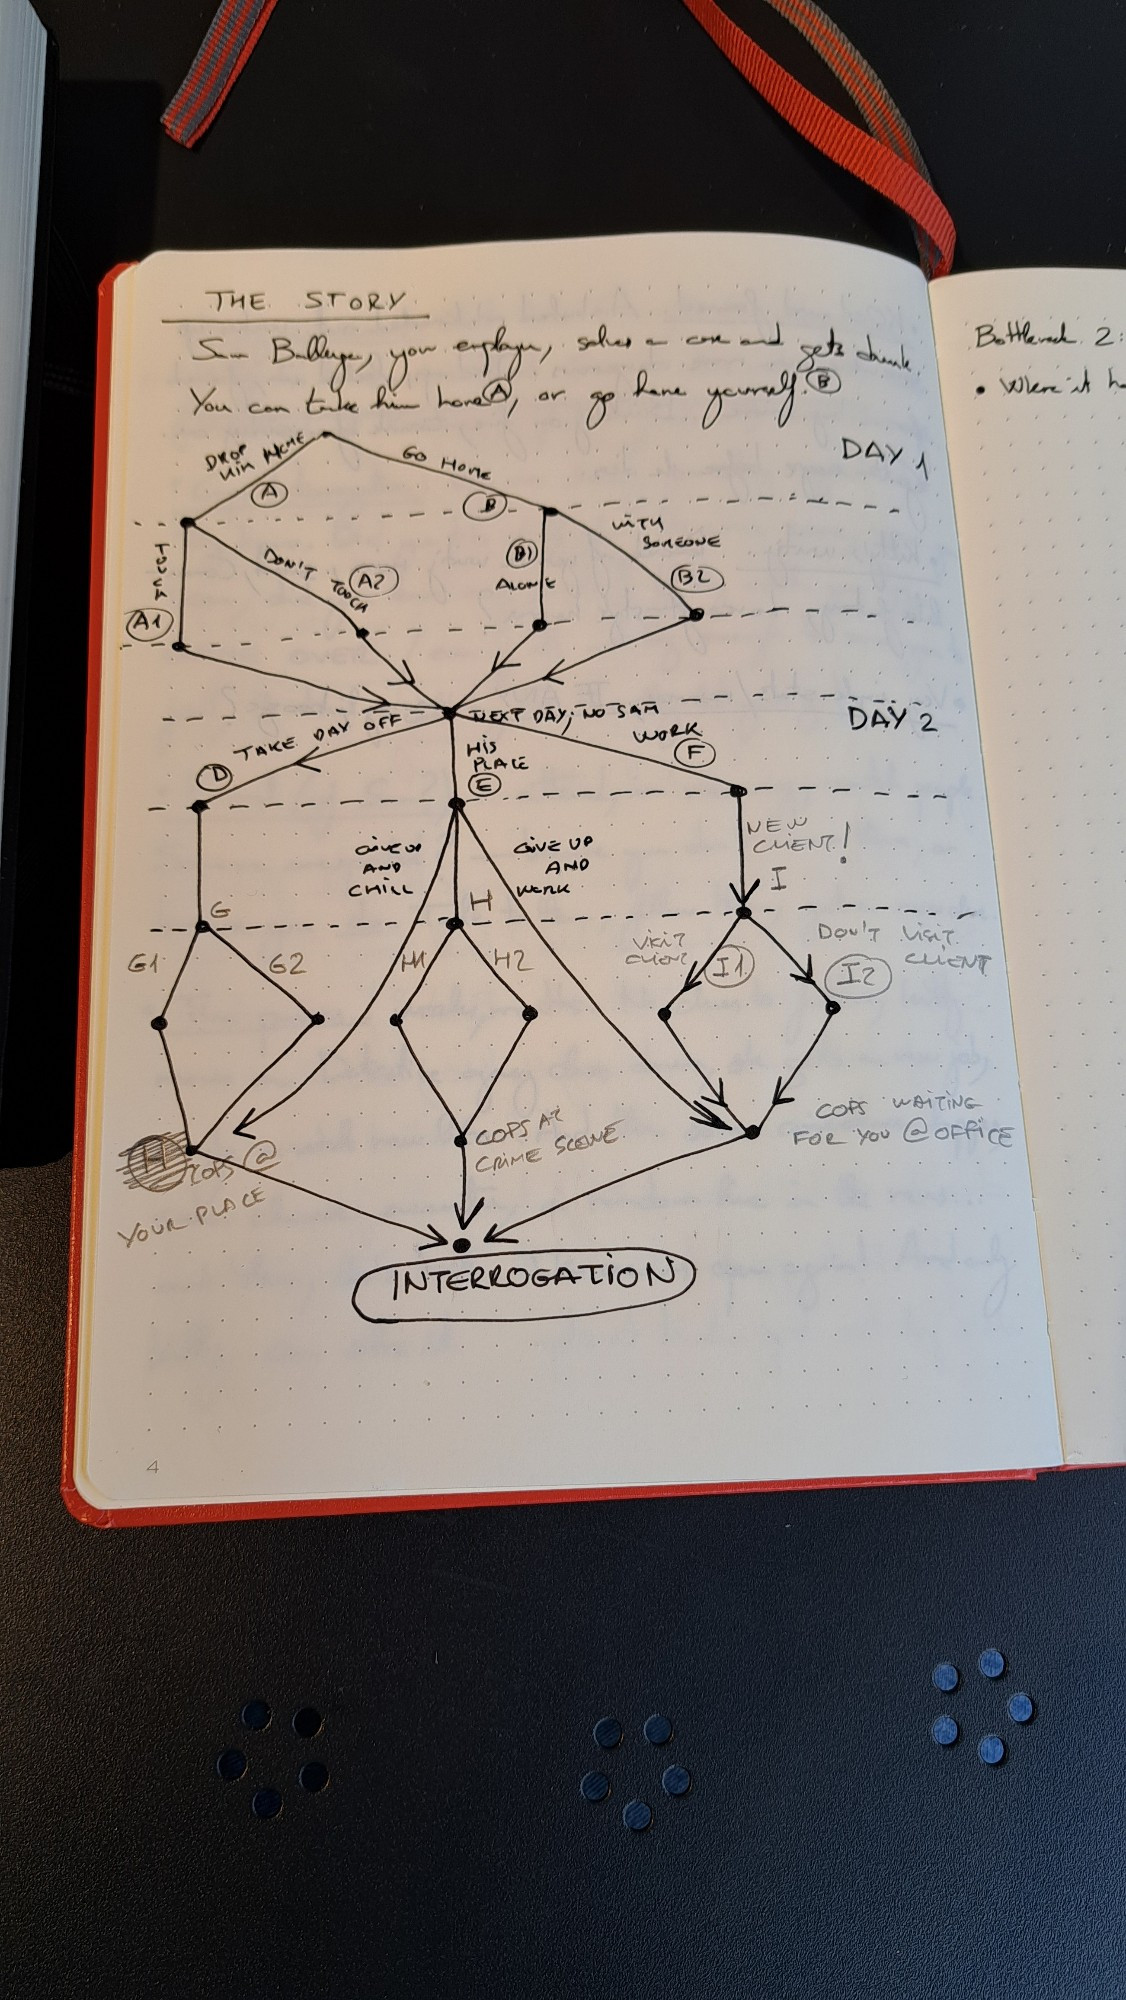 THE STORY
Sam you employer, solves a case and gets drunk.
You can take him home Ⓐ, or go home yourself. Ⓑ
DAY 1
DROP
HIM HOME
A
GO HOME
B
WITH
SOMEONE
TOUCH
DON'T TOUCH
A2
B1
ALONE
B2
A1
NEXT DAY, NO SAM
DAY 2
TAKE DAY OFF
D
HIS
PLACE
E
WORK
F
NEW
CLIENT!
GIVE UP
AND
CHILL
GIVE UP
AND
WORK
I
G
H
G1
G2
H1
H2
VISIT
CLIENT
I1
DON'T VISIT
CLIENT
I2
COPS WAITING
FOR YOU @ OFFICE
COPS AT
CRIME SCENE
H
COPS @
YOUR PLACE
INTERROGATION
4
Bottleneck 2:
• Where it